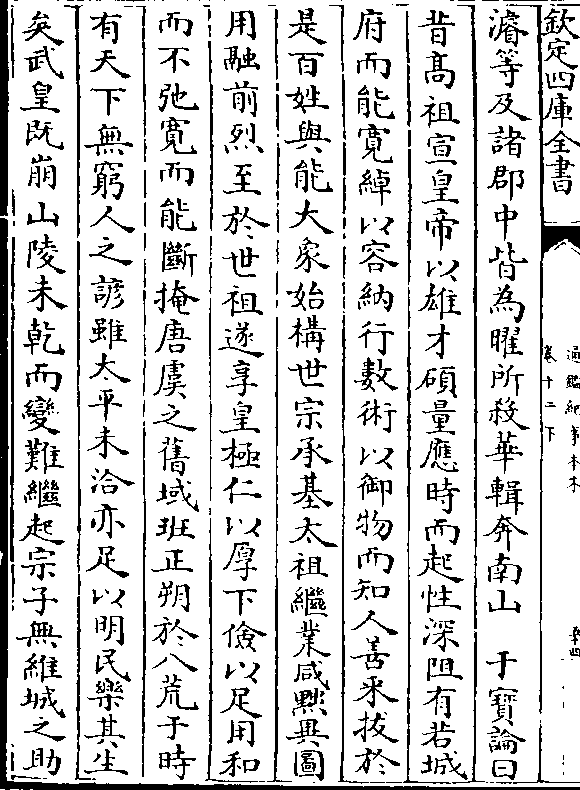 欽定四庫全書
通鑑紀事本末
卷十二下
濬等及諸郡中皆為曜所殺華輯奔南山　于寶論曰
昔髙祖宣皇帝以雄才碩量應時而起性深阻有若城
府而能寛綽以容納行數術以御物而知人善采拔於
是百姓與能大象始構世宗承基太祖繼業咸黙異圖
用融前烈至於世祖遂享皇極仁以厚下儉以足用和
而不弛寛而能斷掩唐虞之舊域班正朔於八荒于時
有天下無窮人之諺雖太平未洽亦足以明民樂其生
矣武皇既崩山陵未乾而變難繼起宗子無維城之助